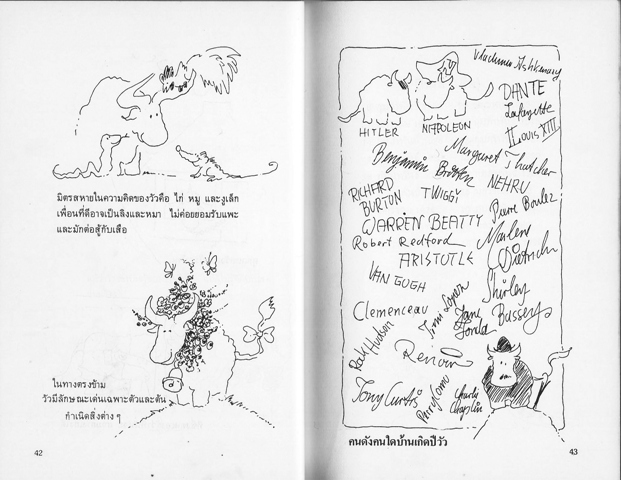 มิตรสหายในความคิดของวัวคือ ไก่ หมู และงูเล็ก
เพื่อนที่ดีอาจเป็นลิงและหมา ไม่ค่อยยอมรับแพะ
และมักต่อสู้กับเสือ
ในทางตรงข้าม
วัวมีลักษณะเด่นเฉพาะตัวและต้น
กำเนิดสิ่งต่าง ๆ
42
Vladimir Ashkenazy
DANTE
Lafayette
LOUIS XIII
HITLER
NAPOLEON
Margaret Thatcher
Benjamin Britten
NEHRU
RICHARD
BURTON
TWIGGY
Pierre Boulez
WARREN BEATTY
Robert Redford
Marlene
Dietrich
ARISTOTLE
VAN GOGH
Shirley
Bassey
Clemenceau
Jane
Fonda
Rock Hudson
Renoir
Tony Curtis
Perry Como
Charlie
Chaplin
คนดังคนใดบ้านเกิดปีวัว
43